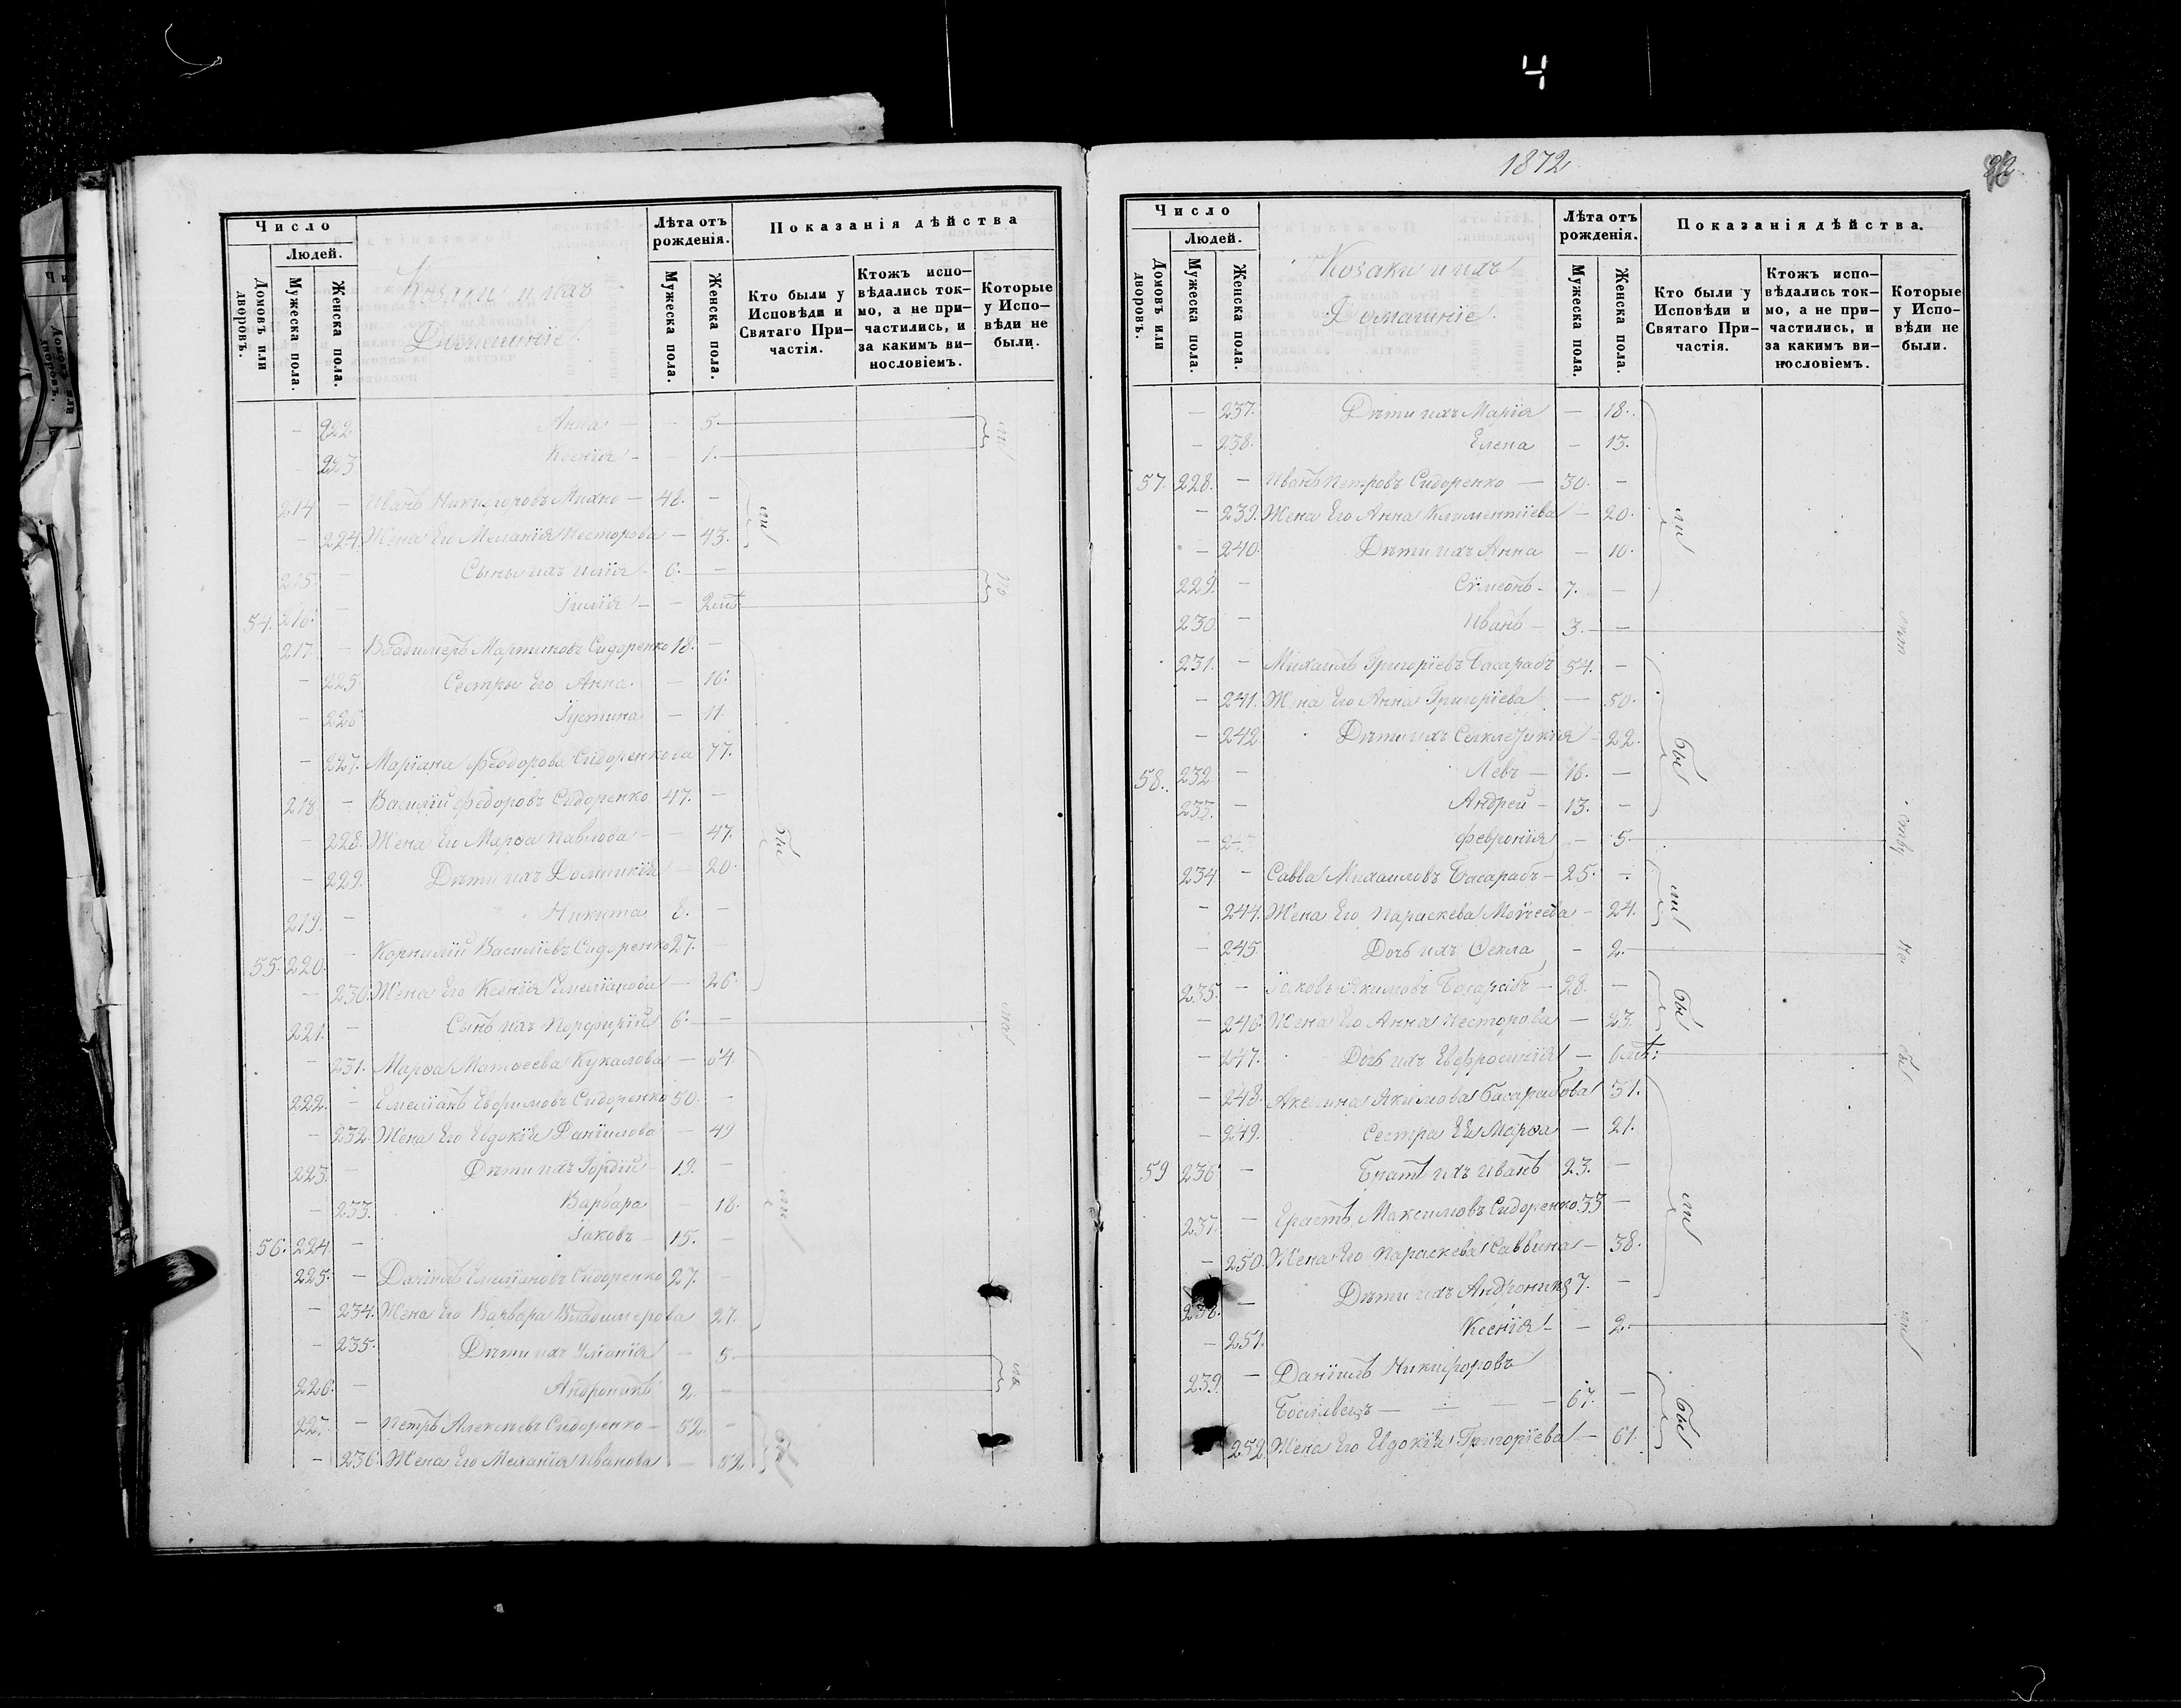 4
Число
Людей.
Домовъ или дворовъ.
Мужеска пола.
Женска пола.
Козаки и ихъ
Домашніе.
Лѣта отъ рожденія.
Мужеска пола.
Женска пола.
Показанія дѣйства
Кто были у Исповѣди и Святаго При-частія.
Ктожъ испо-вѣдались ток-мо, а не при-частились, и за какимъ ви-нословіемъ.
Которые у Испо-вѣди не были.
— 222. Анна — — 5.
223 Ксенія — — 1.
214 — Иванъ Никифоровъ Михно — 48. —
— 224. Жена Его Меланія Несторова — 43.
215. — Сыны ихъ Илія 6. —
54. 216. — Іулія — —
217. — Владимеръ Мартиновъ Сидоренко 18. —
— 225. Сестры Его Анна — 16.
— 226. Іустина — 11.
— 227. Маріана Феодорова Сидоренкова 77.
218. — Василій Федоровъ Сидоренко 47. —
— 228. Жена Его Марѳа Павлова — 47.
— 229. Дѣти ихъ Домникія — 20.
219. — Никита 8. —
55. 220. — Корнилій Василіевъ Сидоренко 27. —
— 230. Жена Его Ксенія Емеліанова — 26.
221. — Сынъ ихъ Порфирій 6. —
— 231. Марѳа Матѳеева Кукалова — 64
222. — Емеліанъ Евфимовъ Сидоренко 50. —
— 232. Жена Его Евдокія Даніилова — 49
223. — Дѣти ихъ Гордій 19. —
— 233. Варвара — 18.
56. 224. — Іаковъ — 15. —
225. — Даніилъ Емеліановъ Сидоренко 27. —
— 234. Жена Его Варвара Владимерова 27.
— 235. Дѣти ихъ — 5.
226. — Андроникъ 2. —
227. — Петръ Алексѣевъ Сидоренко — 52. —
— 236. Жена Его Меланія Иванова — 52
1872
22.
Число
Людей.
Домовъ или дворовъ.
Мужеска пола.
Женска пола.
Козаки и ихъ
Домашніе.
Лѣта отъ рожденія.
Мужеска пола.
Женска пола.
Показанія дѣйства.
Кто были у Исповѣди и Святаго При-частія.
Ктожъ испо-вѣдались ток-мо, а не при-частились, и за какимъ ви-нословіемъ.
Которые у Испо-вѣди не были.
— 237. Дѣти ихъ Марія — 18.
— 238. Елена — 13.
57. 228. — Иванъ Петровъ Сидоренко — 30. —
— 239. Жена Его Анна Климентіева — 20.
— 240. Дѣти ихъ Анна — 10.
229. — Сѵмеонъ — 7. —
230. — Иванъ — 3. —
231. — Михаилъ Григоріевъ Басарабъ 54. —
— 241. Жена Его Анна Григоріева — 50.
— 242. Дѣти ихъ — 22.
58. 232. — Левъ — 16. —
233. — Андрей — 13. —
— 243 Февронія — 5.
234 — Савва Михаиловъ Басарабъ — 25. —
— 244. Жена Его Параскева Моѵсеева — 24.
— 245. Дочь ихъ Ѳекла — 2.
235. — Іаковъ Якимовъ Басарабъ — 28. —
— 246. Жена Его Анна Несторова — 23.
— 247. Дочь ихъ Евфросинія —
— 248. Акелина Якимова Басарабова 31.
— 249. Сестра Ея Марѳа — 21.
59 236. — Братъ ихъ Иванъ 23. —
237. — Ерастъ Максимовъ Сидоренко 33 —
— 250. Жена Его Параскева Саввина — 38.
238. — Дѣти ихъ Андроникъ 7. —
— 251. Ксенія — — 2.
239. — Даніилъ Никифоровъ
— 67. —
252. Жена Его Евдокія Григоріева — 61.